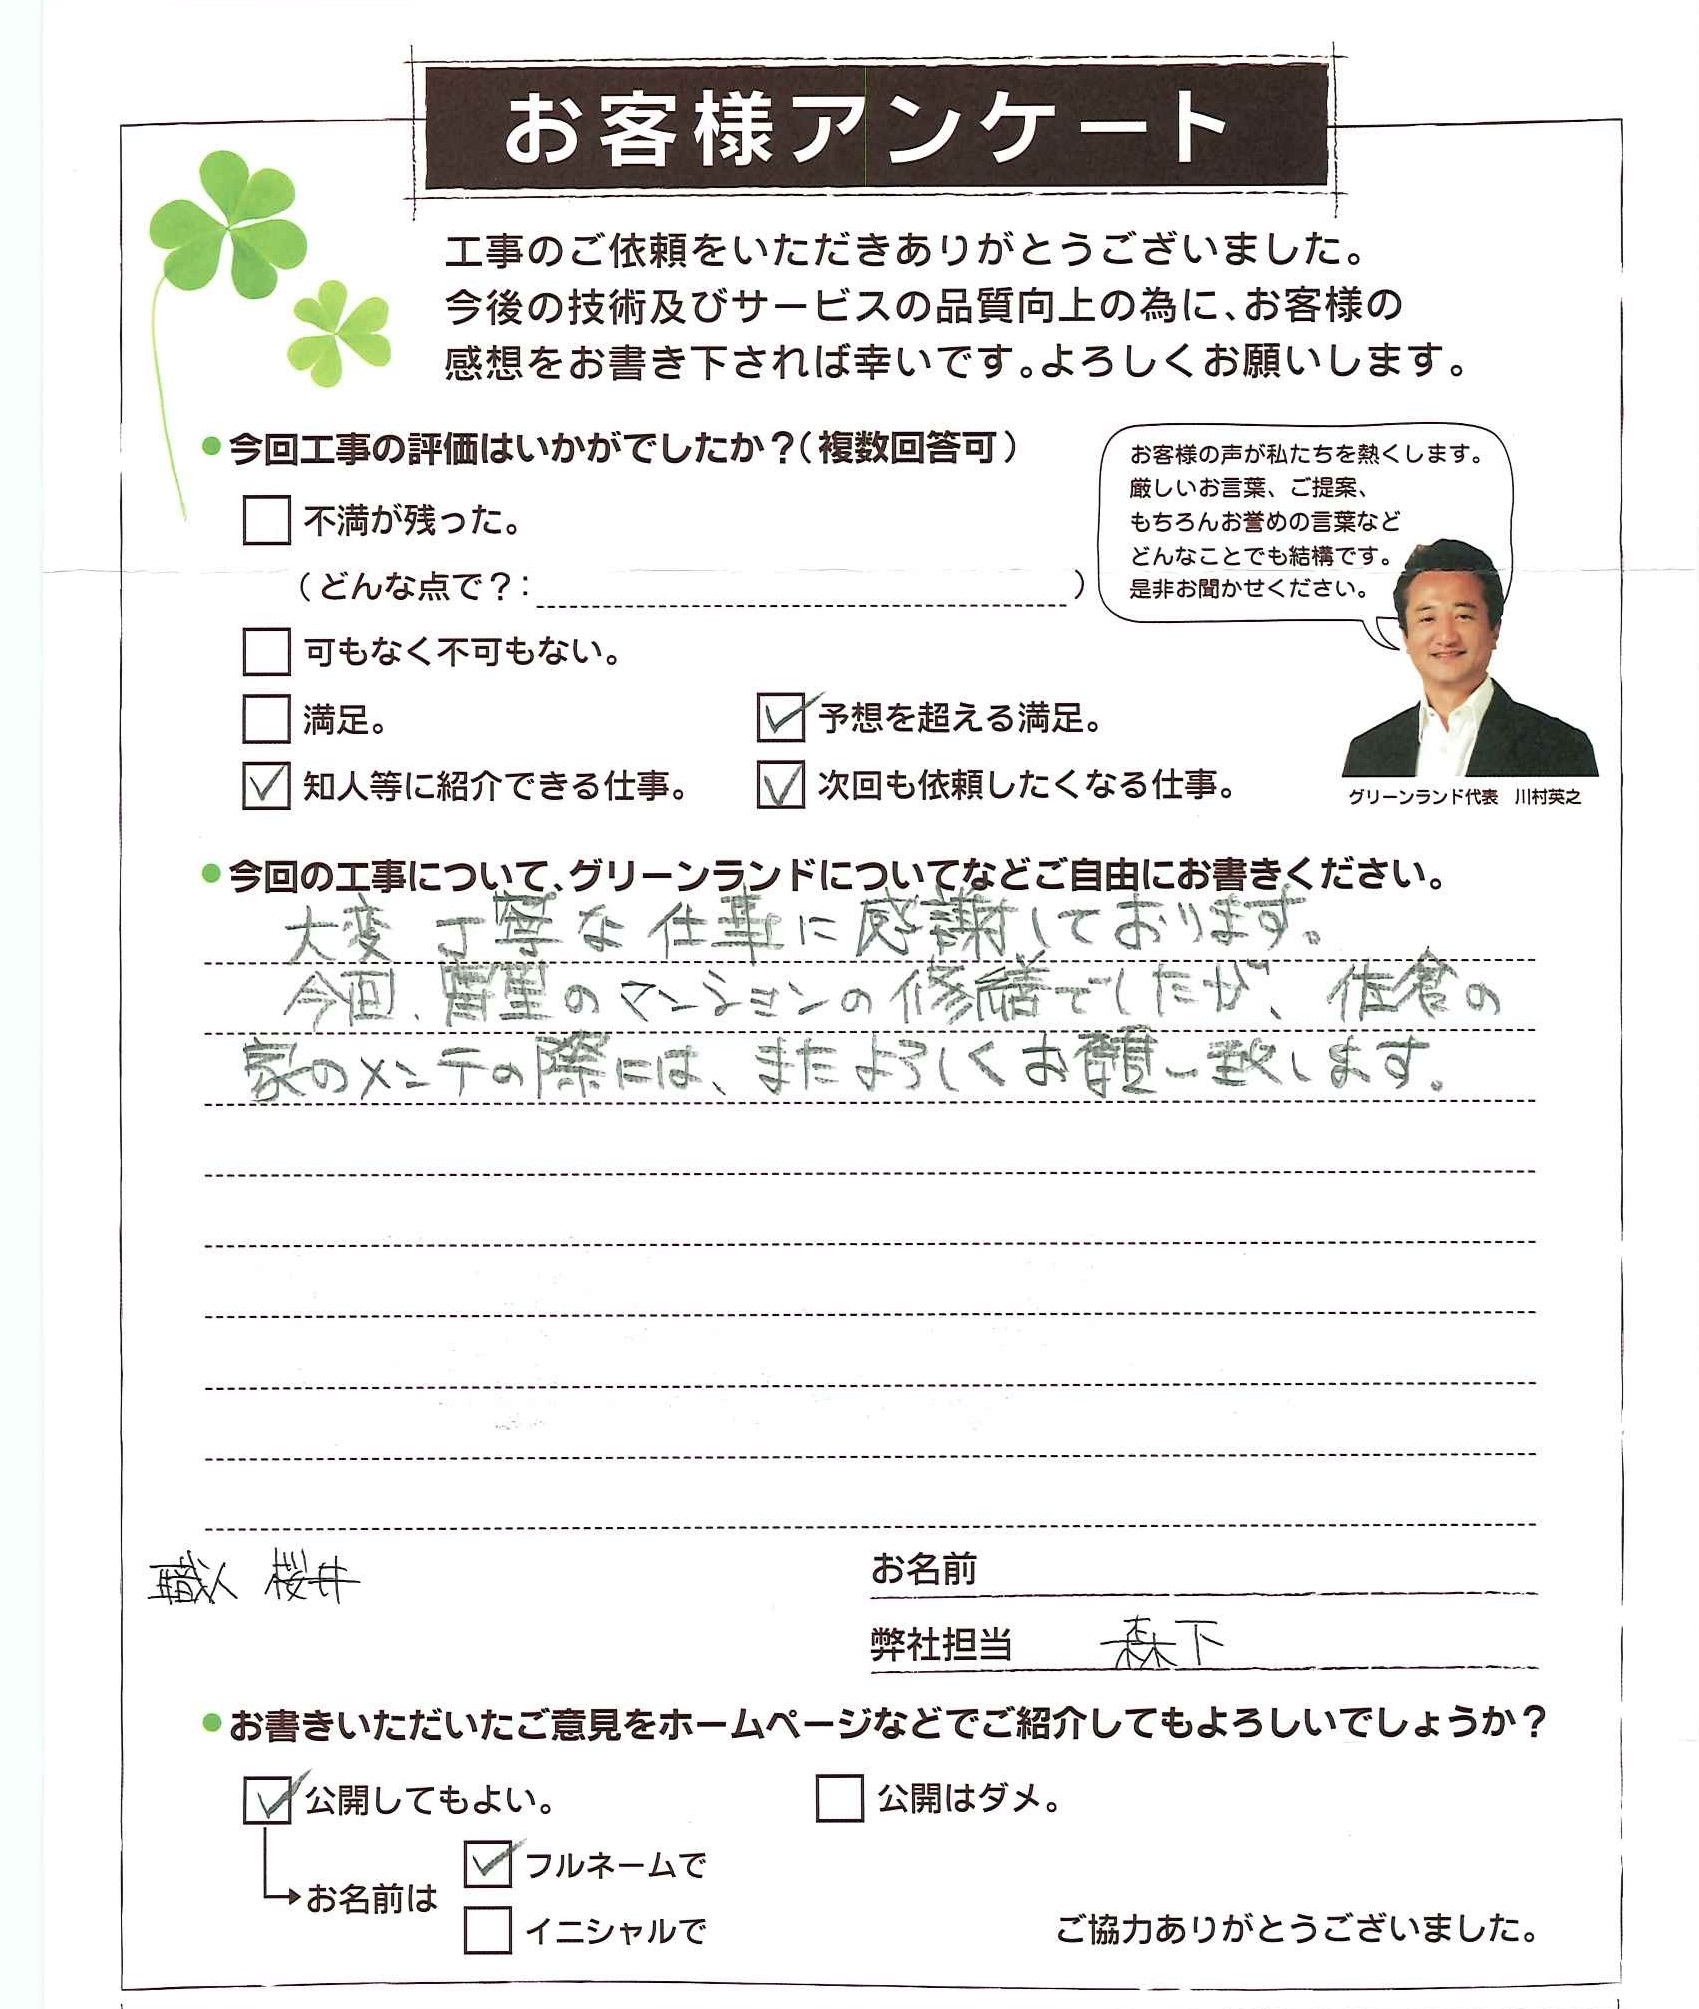 お客様アンケート
工事のご依頼をいただきありがとうございました。
今後の技術及びサービスの品質向上の為に、お客様の
感想をお書き下されば幸いです。よろしくお願いします。
●今回工事の評価はいかがでしたか？（複数回答可）
お客様の声が私たちを熱くします。
厳しいお言葉、ご提案、
もちろんお誉めの言葉など
どんなことでも結構です。
是非お聞かせください。
不満が残った。
（どんな点で？：　　　）
可もなく不可もない。
満足。
予想を超える満足。
知人等に紹介できる仕事。
次回も依頼したくなる仕事。
グリーンランド代表　川村英之
●今回の工事について、グリーンランドについてなどご自由にお書きください。
大変丁寧な仕事に感謝しております。
今回、富里のマンションの修繕でしたが、佐倉の
家のメンテの際には、またよろしくお願い致します。
職人 桜井
お名前
弊社担当　森下
●お書きいただいたご意見をホームページなどでご紹介してもよろしいでしょうか？
公開してもよい。
公開はダメ。
お名前は
フルネームで
イニシャルで
ご協力ありがとうございました。